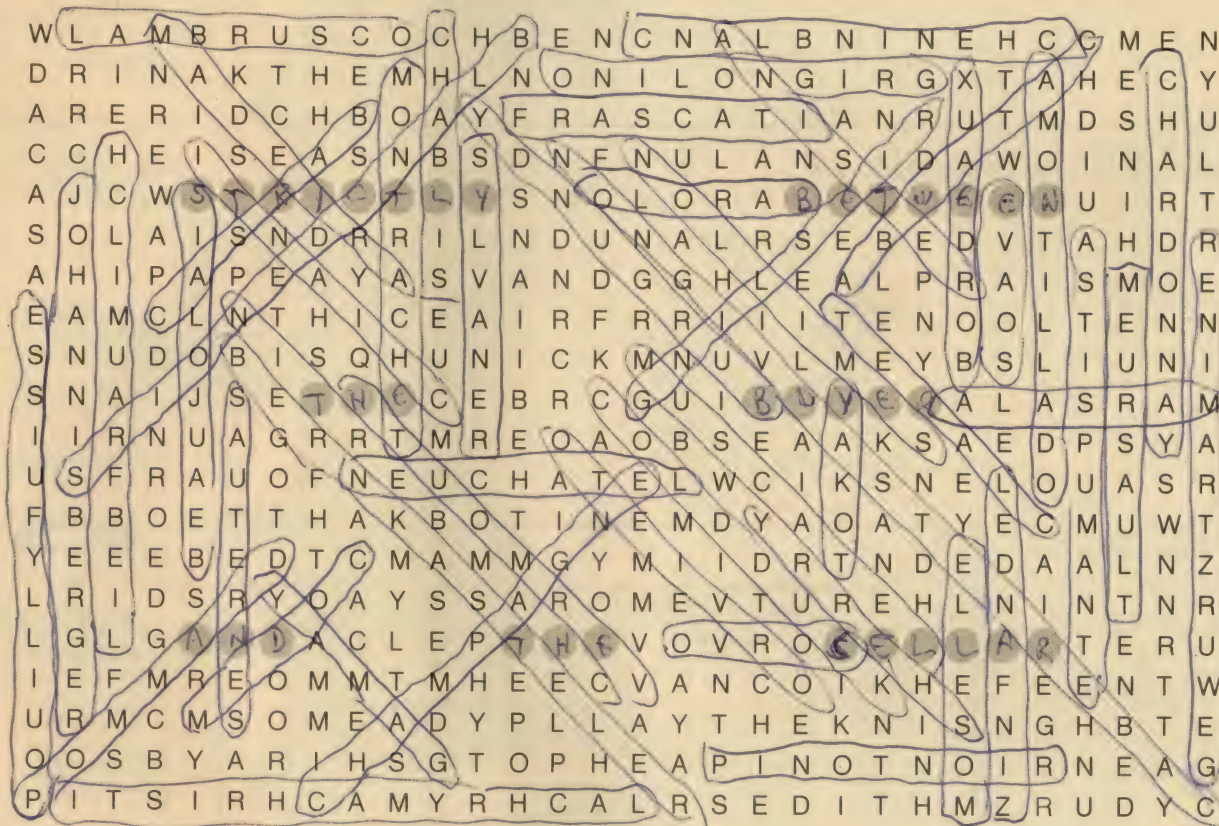 W L A M B R U S C O C H B E N C N A L B N I N E H C C M E N
D R I N A K T H E M H L N O N I L O N G I R G X T A H E C Y
A R E R I D C H B O A Y F R A S C A T I A N R U T M D S H U
C C H E I S E A S N B S D N F N U L A N S I D A W O I N A L
A J C W S T R I C T L Y S N O L O R A B E T W E E N U I R T
S O L A I S N D R R I L N D U N A L R S E B E D V T A H D R
A H I P A P E A Y A S V A N D G G H L E A L P R A I S M O E
E A M C L N T H I C E A I R F R R I I I T E N O O L T E N N
S N U D O B I S Q H U N I C K M N U V L M E Y B S L I U N I
S N A I J S E T H E C E B R C G U I B U Y E R A L A S R A M
I I R N U A G R R T M R E O A O B S E A A K S A E D P S Y A
U S F R A U O F N E U C H A T E L W C I K S N E L O U A S R
F B B O E T T H A K B O T I N E M D Y A O A T Y E C M U W T
Y E E E B E D T C M A M M G Y M I I D R T N D E D A A L N Z
L R I D S R Y O A Y S S A R O M E V T U R E H L N I N T N R
L G L G A N D A C L E P T H E V O V R O C E L L A R T E R U
I E F M R E O M M T M H E E C V A N C O I K H E F E E N T W
U R M C M S O M E A D Y P L L A Y T H E K N I S N G H B T E
O O S B Y A R I H S G T O P H E A P I N O T N O I R N E A G
P I T S I R H C A M Y R H C A L R S E D I T H M Z R U D Y C